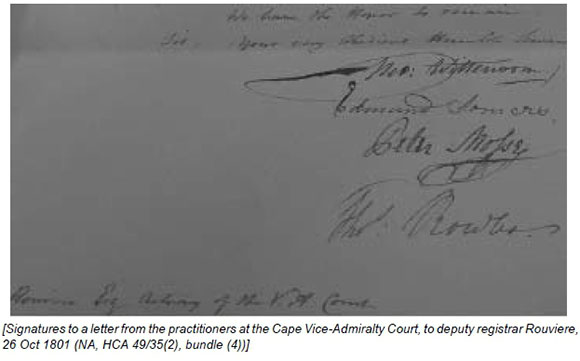 We have the Honor to remain
Sir, Your very Obedient Humble
Geo: Wittenoom
Edmund Somers
Peter Mosse
Thos. Rowles
Rouviere Esq Actuary of the V. A. Court
[Signatures to a letter from the practitioners at the Cape Vice-Admiralty Court, to deputy registrar Rouviere,
26 Oct 1801 (NA, HCA 49/35(2), bundle (4))]